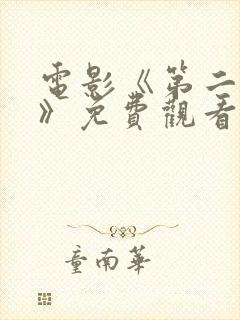 電影《第二
》免費觀看
童南華